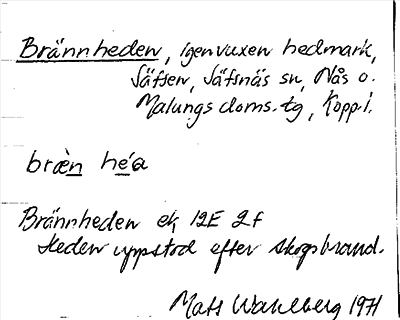 Brännheden, igenvuxen hedmark,
Säfsen, Säfsnäs sn, Nås o.
Malungs doms.tg, Kopp.l.
bræ̀n hé̱a
Brännheden ek 12E 2f
Heden uppstod efter skogsbrand.
Mats Wahlberg 1971